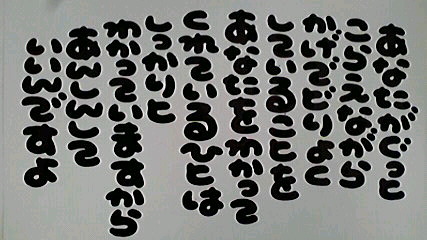 あなたがぐっと
こらえながら
かげでどりょく
していることを
あなたをわかって
くれているひとは
しっかりと
わかっていますから
あんしんして
いいんですよ